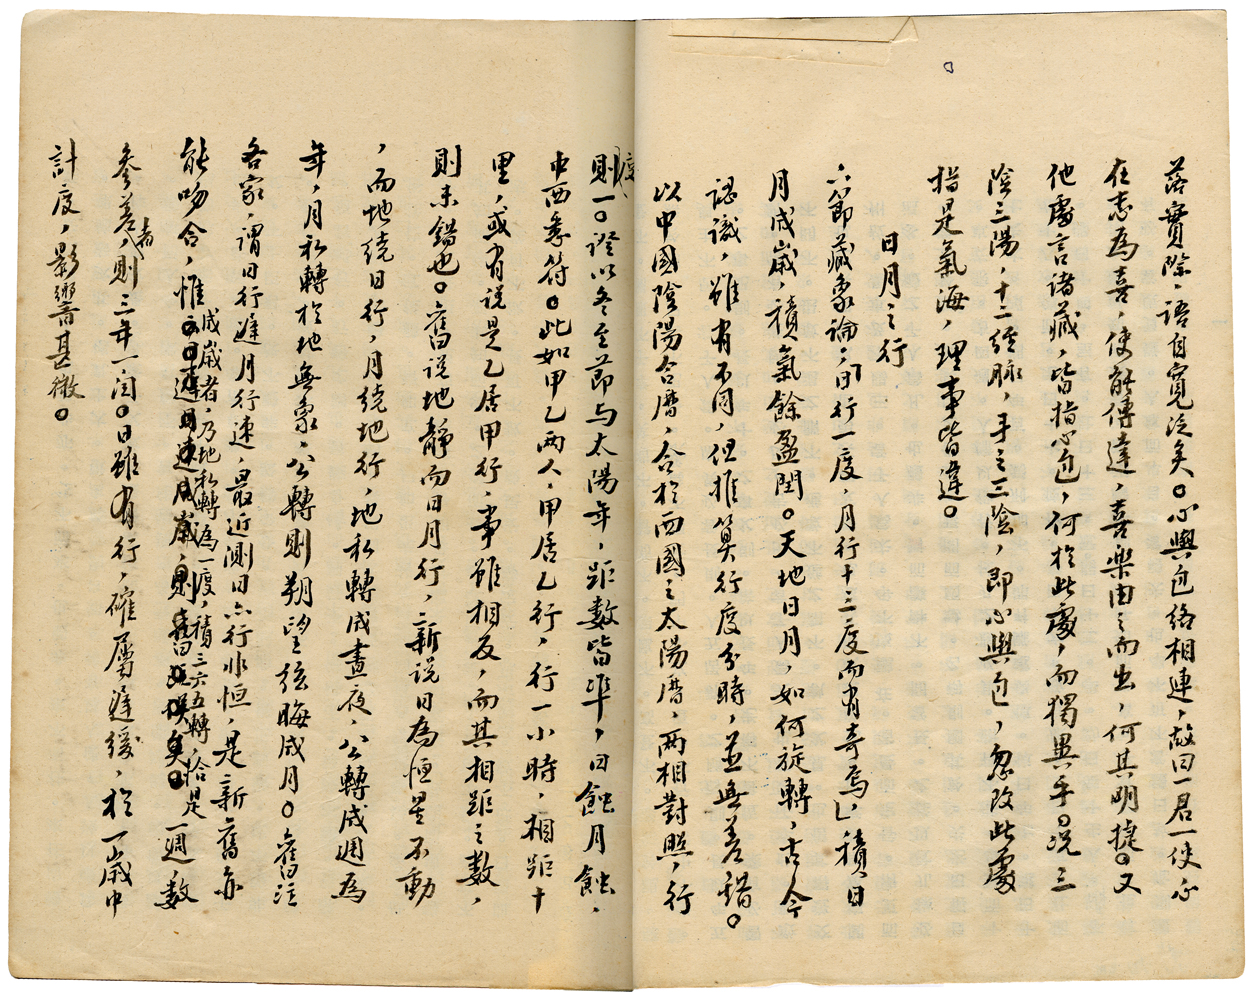 落實際，語自寬泛矣。心與包络相連，故曰一君一使，心
在志為喜，使能傳達，喜樂由之而出，何其明捷。又
他處言諸藏，皆指心包，何於此處，而獨異乎。况三
陰三陽，十二經脉，手之三陰，即心與包，忽改此處
指是氣海，理事皆違。
日月之行
六節藏象論，「日行一度，月行十三度而有奇焉」，積日
月成嵗，積氣餘盈閏。天地日月，如何旋轉，古今
認識，雖有不同，但推算行度分時，並無差錯。
以中國陰陽合曆，合於西國之太陽曆，两相對照，行
度，
則一。證以冬至節与太陽年，距數皆準，日蝕月蝕，
中西季符。此如甲乙两人，甲居乙行，行一小時，相距十
里，或有说是乙居甲行，事雖相反，而其相距之數，
則未錯也。舊说地靜而日月行，新说日為恒星不動
，而地绕日行，月绕地行，地私轉成晝夜，公轉成週為
年，月私轉於地無象，公轉則朔望弦晦成月。舊注
各家，謂日行遲月行速，最近測日亦行非恒，是新舊亦
能吻合，惟
成嵗者，乃地私轉為一度，積三六五轉，恰是一週數
参差者，則三年一閏。日雖有行，確屬遲缓，於一嵗中
計度，影響甚微。